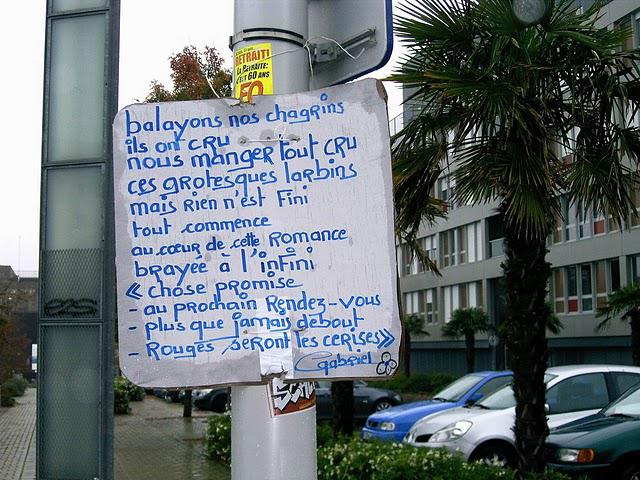 RETRAIT!
LA RETRAITE:
C'EST 60 ANS
FO
balayons nos chagrins
ils on cru
nous manger tout cru
ces grotesques larbins
mais rien n'est fini
tout commence
au cœur de cette romance
brayée à l'infini
« chose promise
- au prochain rendez-vous
- plus que jamais debout
- Rouges seront les cerises »
Gabriel